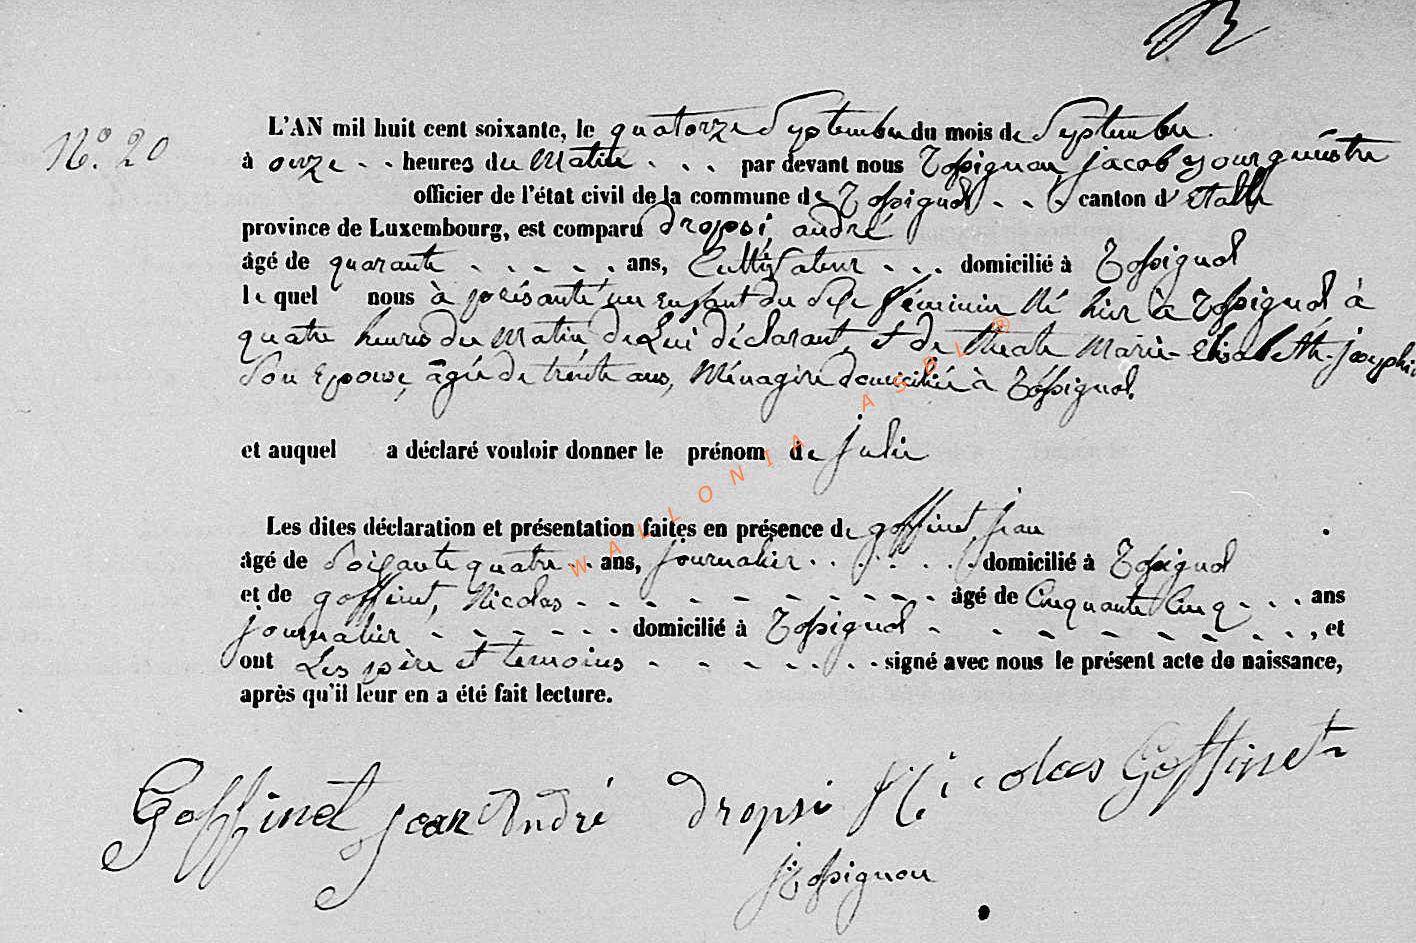 N° 20
L'AN mil huit cent soixante, le quatorze Septembre du mois de Septembre.
à onze - - heures du Matin - - - par devant nous Rossignon, jacob Bourguméstre
officier de l'état civil de la commune de Rossignol - - - canton d' Etalle
province de Luxembourg, est comparu dropsi, andré
âgé de quarante - - - - - ans, Cultivateur - - - domicilié à Rossignol
le quel nous à présanté un enfant du Sexe féminin Né hier à Rossignol à
quatre heures du Matin de Lui déclarant, et de Marie-Elisabeth-joséphine
Son Epouse, âgée de trente ans, Ménagère domiciliée à Rossignol.
et auquel a déclaré vouloir donner le prénom de julie
Les dites déclaration et présentation faites en présence de goffinet, jean
âgé de Soixante quatre - - ans, journalier - - - - - - domicilié à Rossignol
et de goffinet, Nicolas - - - - - - - - - - - âgé de Cinquante Cinq - - - ans
journalier - - - - - - domicilié à Rossignol - - - - - - - - - , et
ont Les père et temoins - - - - - - - signé avec nous le présent acte de naissance,
après qu'il leur en a été fait lecture.
Goffinet jean André dropsi Nicolas Goffinet
J. Rossignon
WALLONIA ASBL ®